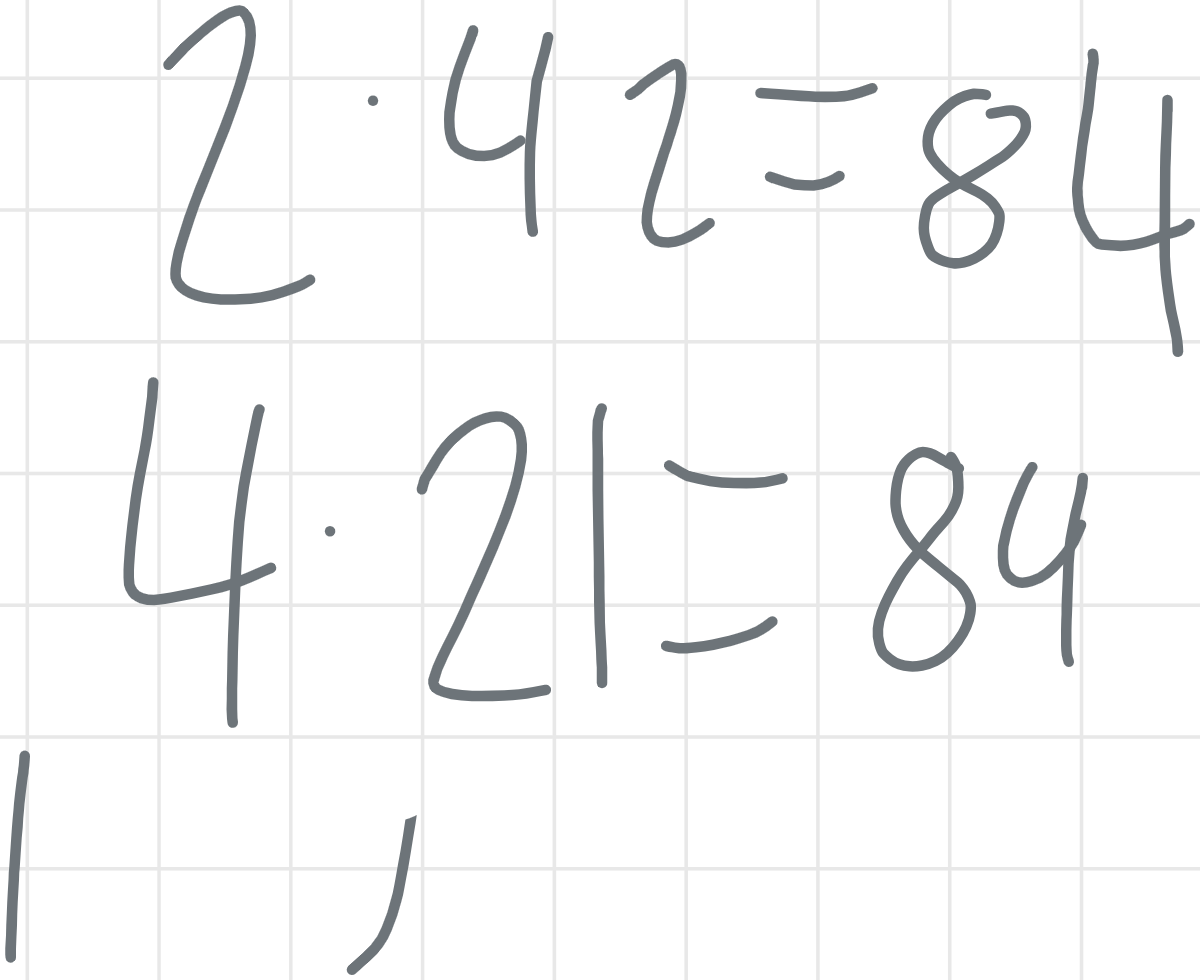 2 · 42 = 84
4 · 21 = 84
1 ,